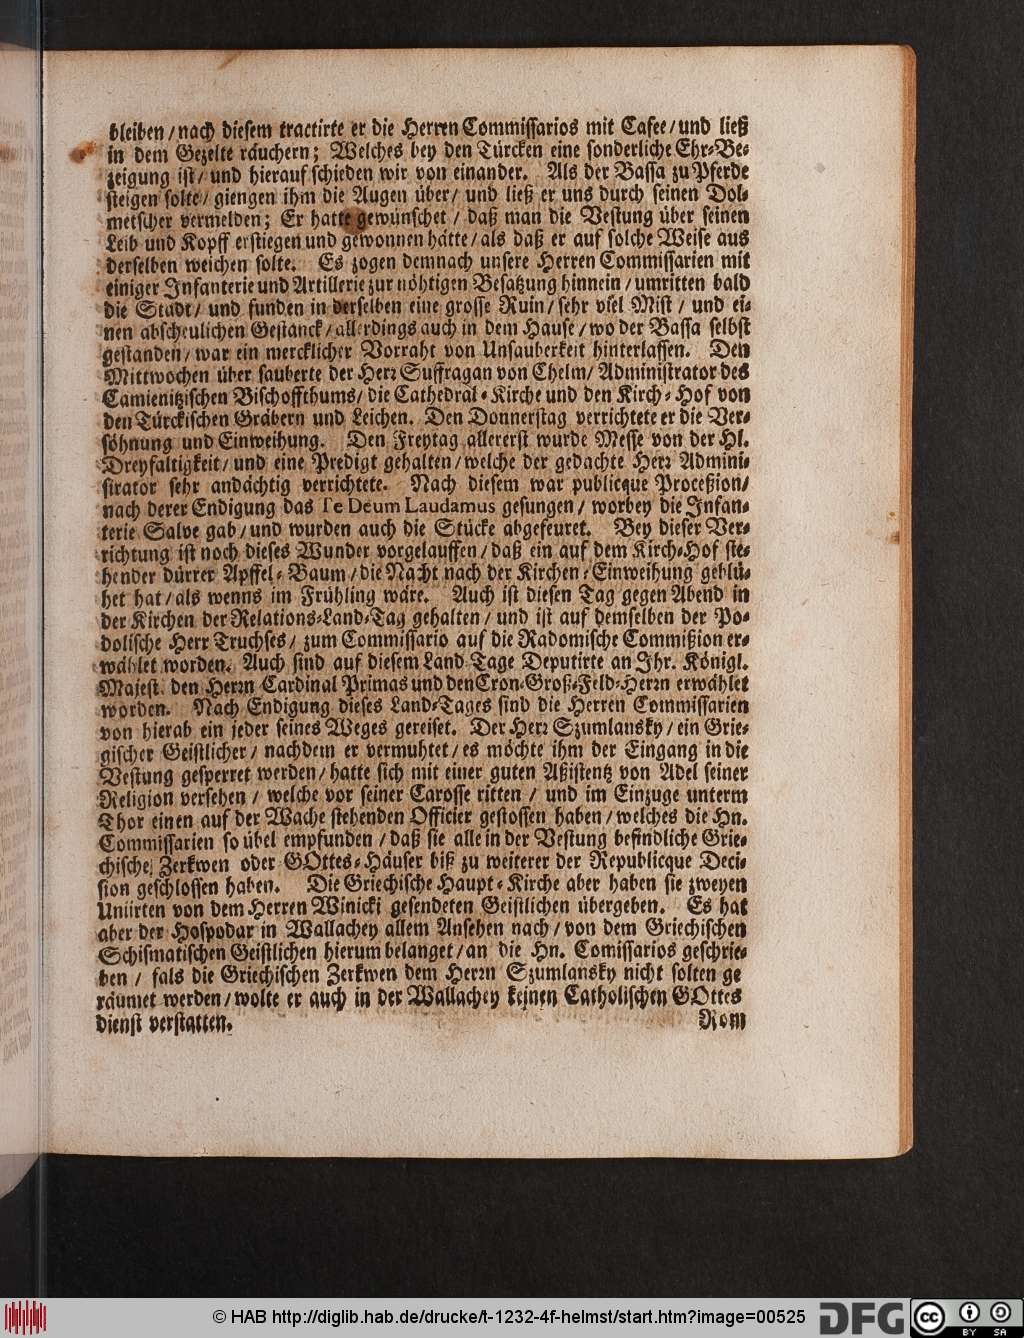 bleiben / nach diesem tractirte er die Herren Commissarios mit Cafee / und ließ
in dem Gezelte räuchern; Welches bey den Türcken eine sonderliche Ehr-Be-
zeigung ist / und hierauf schieden wir von einander. Als der Bassa zu Pferde
steigen solte / giengen ihm die Augen über / und ließ er uns durch seinen Dol-
metscher vermelden; Er hatte gewünschet / daß man die Vestung über seinen
Leib und Kopff erstiegen und gewonnen hätte / als daß er auf solche Weise aus
derselben weichen solte. Es zogen demnach unsere Herren Commissarien mit
einiger Infanterie und Artillerie zur nöhtigen Besatzung hinnein / umritten bald
die Stadt / und funden in derselben eine grosse Ruin / sehr viel Mist / und ei-
nen abscheulichen Gestanck / allerdings auch in dem Hause / wo der Bassa selbst
gestanden / war ein mercklicher Vorraht von Unsauberkeit hinterlassen. Den
Mittwochen über sauberte der Herr Suffragan von Chelm / Administrator des
Camienitzischen Bischoffthums / die Cathedral-Kirche und den Kirch-Hof von
den Türckischen Gräbern und Leichen. Den Donnerstag verrichtete er die Ver-
söhnung und Einweihung. Den Freytag allererst wurde Messe von der Hl.
Dreyfaltigkeit / und eine Predigt gehalten / welche der gedachte Herr Admini-
strator sehr andächtig verrichtete. Nach diesem war publicque Proceßion /
nach derer Endigung das Te Deum Laudamus gesungen / worbey die Infan-
terie Salve gab / und wurden auch die Stücke abgefeuret. Bey dieser Ver-
richtung ist noch dieses Wunder vorgelauffen / daß ein auf dem Kirch-Hof ste-
hender dürrer Apffel-Baum / die Nacht nach der Kirchen-Einweihung geblü-
het hat / als wenns im Frühling wäre. Auch ist diesen Tag gegen Abend in
der Kirchen der Relations-Land-Tag gehalten / und ist auf demselben der Po-
dolische Herr Truchses / zum Commissario auf die Radomische Commißion er-
wählet worden. Auch sind auf diesem Land-Tage Deputirte an Ihr. Königl.
Majest. den Herrn Cardinal Primas und den Cron-Groß-Feld-Herrn erwählet
worden. Nach Endigung dieses Land-Tages sind die Herren Commissarien
von hierab ein jeder seines Weges gereiset. Der Herr Szumlansky / ein Grie-
gischer Geistlicher / nachdem er vermuhtet / es möchte ihm der Eingang in die
Vestung gesperret werden / hatte sich mit einer guten Aßistentz von Adel seiner
Religion versehen / welche vor seiner Carosse ritten / und im Einzuge unterm
Thor einen auf der Wache stehenden Officier gestossen haben / welches die Hn.
Commissarien so übel empfunden / daß sie alle in der Vestung befindliche Grie-
chische Zerkwen oder GOttes-Häuser biß zu weiterer der Republicque Deci-
sion geschlossen haben. Die Griechische Haupt-Kirche aber haben sie zweyen
Uniirten von dem Herren Winicki gesendeten Geistlichen übergeben. Es hat
aber der Hospodar in Wallachey allem Ansehen nach / von dem Griechischen
Schismatischen Geistlichen hierum belanget / an die Hn. Comissarios geschrie-
ben / fals die Griechischen Zerkwen dem Herrn Szumlansky nicht solten ge
räumet werden / wolte er auch in der Wallachey keinen Catholischen GOttes
dienst verstatten. Rom
© HAB http://diglib.hab.de/drucke/t-1232-4f-helmst/start.htm?image=00525
DFG cc BY SA